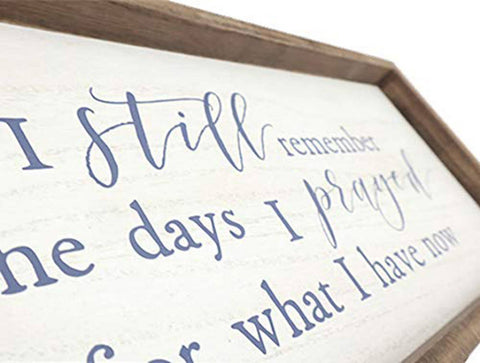 I still remember
he days I prayed
for what I have now